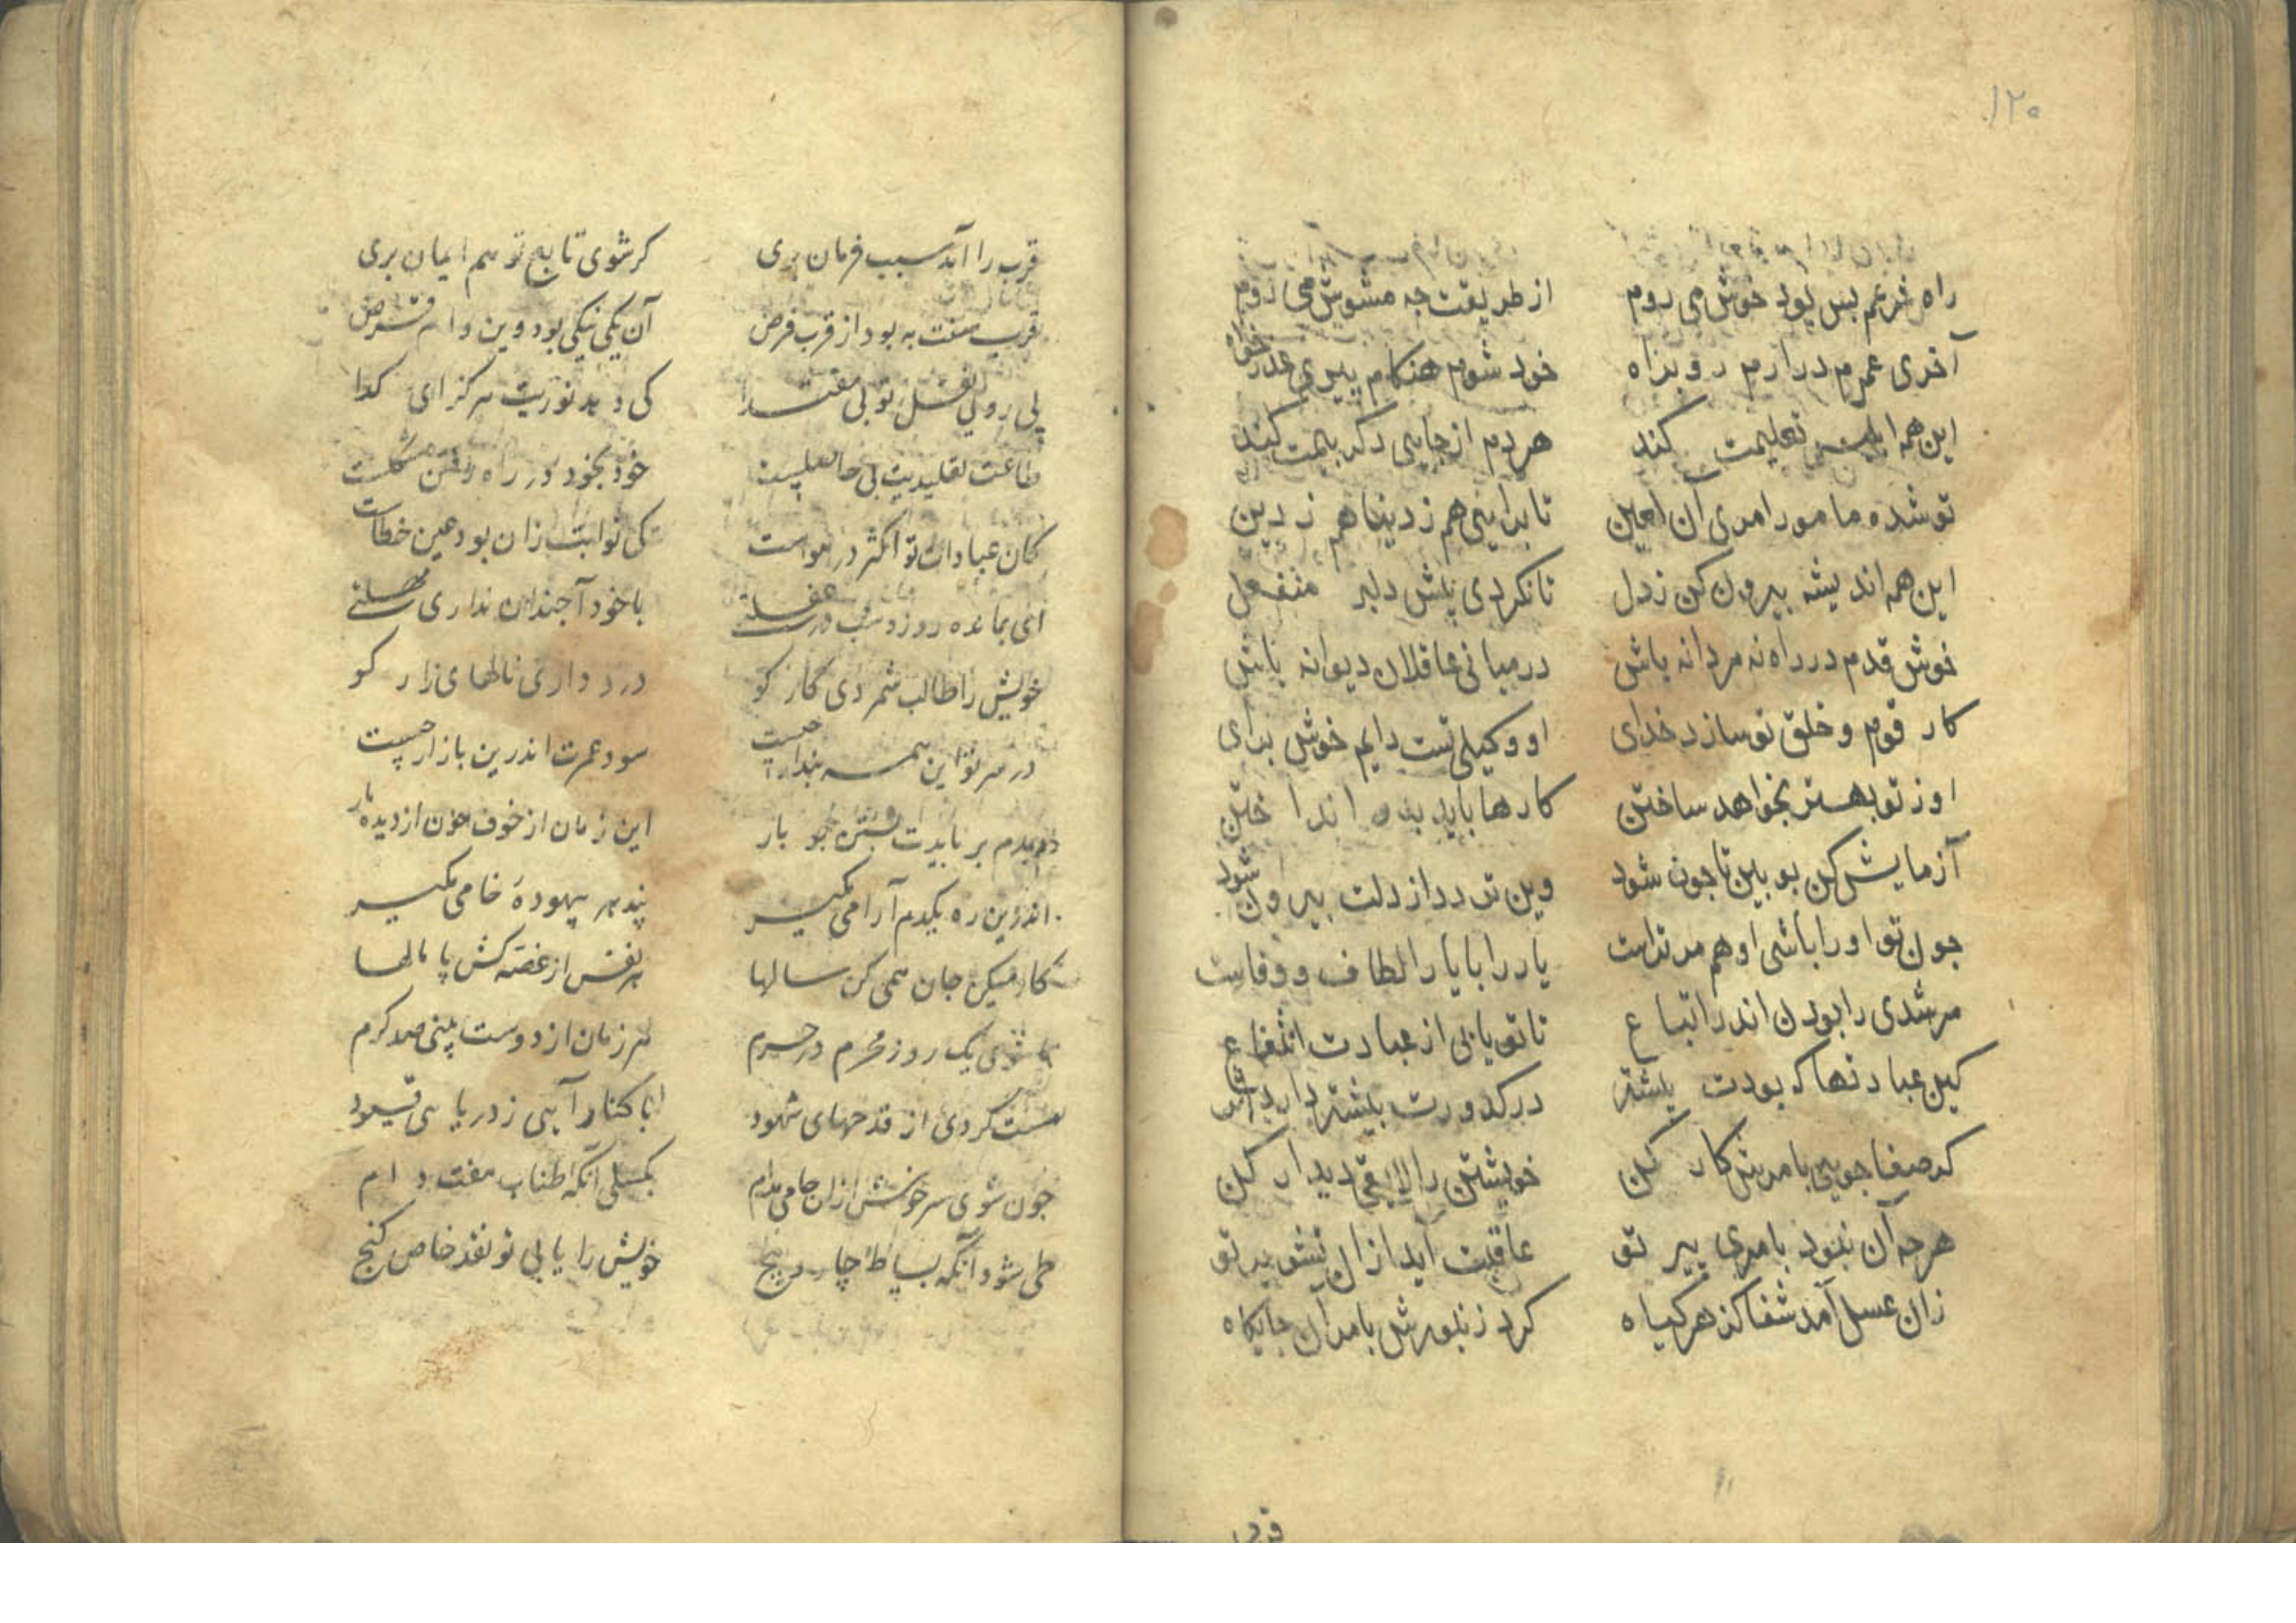 ۱۲۰
راه شرعم بس بود خوش می روم از طریقت جه مشوش می روم
آخری عمرم در ارم رو براه خود شوم هنکام پیری عذر خواه
این همه ابلیس تعلیمت کند هر دم از جایی دکر بیمت کند
تو شده مامور امری آن لعین تا برایی هم ز دینا هم ز دین
این همه اندیشه بیرون کن ز دل تا نکردی پیش دلبر منفعل
خوش قدم در راه نه مردانه باش در میانی عاقلان دیوانه باش
کار قوم و خلق تو سازد خدای او وکیلی تست دایم خوش برای
او ز تو بهتر بخواهد ساختن کارها باید بدو اندا ختن
آزمایش کن بو بین تا جون شود وین تردد از دلت بیرون شود
جون تو اورا باشی او هم مر تراست یار را با یار الطاف و وفاست
مرشدی را بودن اندر اتباع تا تو یابی از عبادت انتفاع
کین عبادتها که بودت بیشتر در کدورت بیشتر دارد
کر صفا جویی با مرش کار کن خویشتن را لایق دیدار کن
هرجه آن نبود بامری پیر تو عاقبت آید از ان تشویر تو
زان عسل آمد شفا کز هر کیاه کرد زنبورش بامر آن جایکاه
قرب
قرب را آمد سبب فرمان بری کر شوی تابع تو هم ایمان بری
قرب سنت به بود از قرب فرض آن یکی نیکی بود وین وام قرض
پی روی نفسل تو بی مقتدا کی دهد نوریت هرکز ای کدا
طاعت تقلیدیت بی حاصلیست خود بخود در راه رفتن مشکلست
کان عبادات تو اکثر در هواست کی ثوابت زان بود عین خطاست
ای بمانده روز و شب در غفلتی با خود آ جندان نداری مهلتی
خویش را طالب شمردی کار کو درد داری نالهای زار کو
در سر تو این همه بندار جیست سود عمرت اندرین بازار جیست
دمبدم بر نایدت جو بار این زمان از خوف خون از دیده بار
اندرین ره یکدم آرامی مکیر پند بیهودهٔ خامی مکیر
کار میکن جان همی کن سالها هر نفس از غصه کش پامالها
تا شوی یک روز محرم در حرم هر زمان از دوست بینی صد کرم
مست کردی از قدحهای شهود تا کنار آیی ز دریا بی قیود
جون شوی سرخوش ازان جامی مدام بکسلی آنکه طناب هفت دام
طی شود آنکه بساط چار و پنج خویش را یابی تو نقد خاص کنج